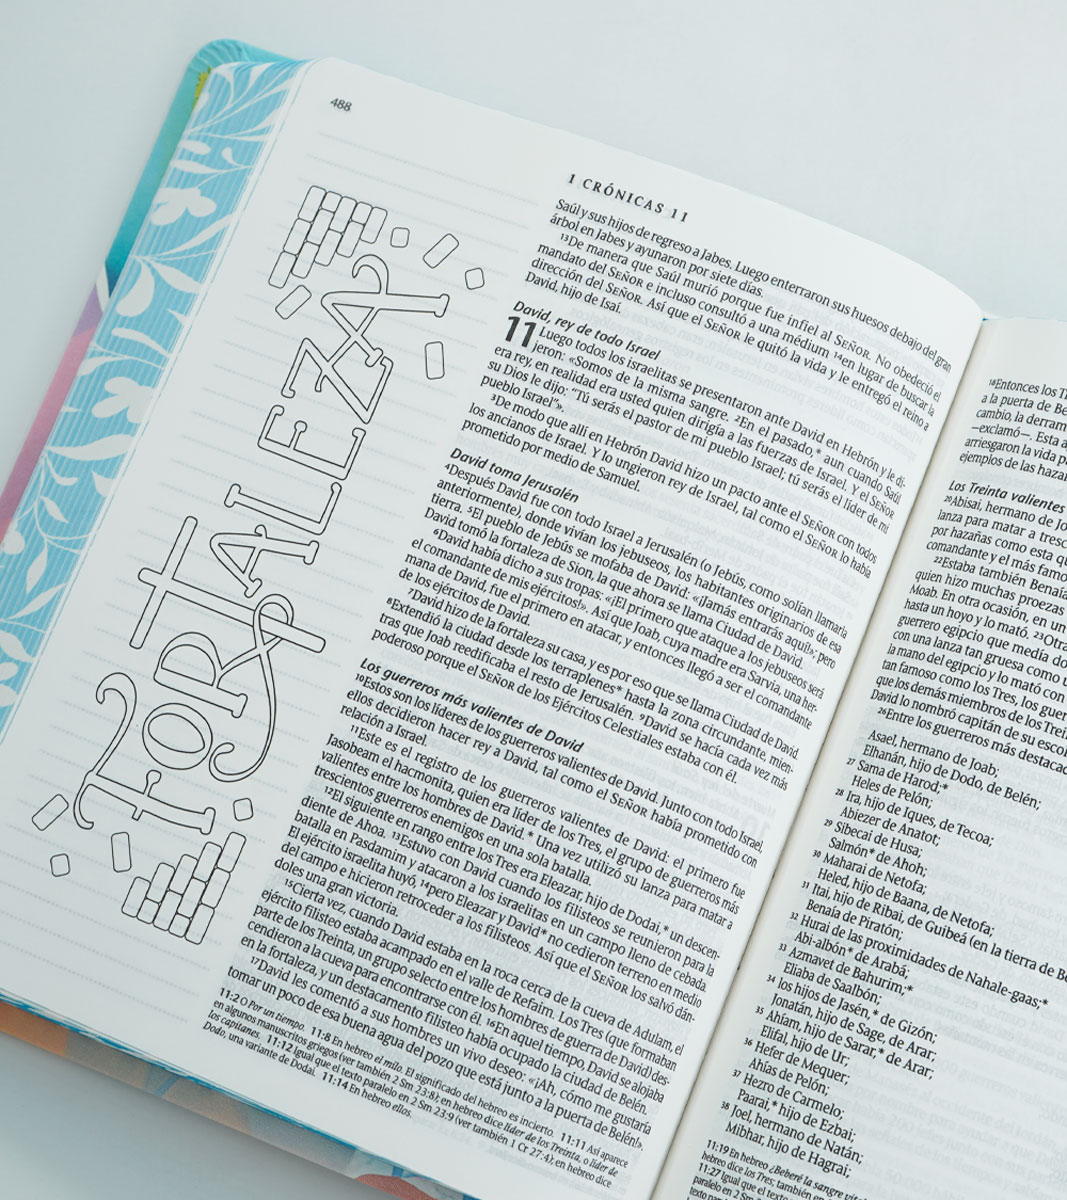 488
FORTALEZA
1 CRÓNICAS 11
Saúl y sus hijos de regreso a Jabes. Luego enterraron sus huesos debajo del gran
árbol en Jabes y ayunaron por siete días.
13De manera que Saúl murió porque fue infiel al SEÑOR. No obedeció el
mandato del SEÑOR e incluso consultó a una médium 14en lugar de buscar la
dirección del SEÑOR. Así que el SEÑOR le quitó la vida y le entregó el reino a
David, hijo de Isaí.
David, rey de todo Israel
11 Luego todos los israelitas se presentaron ante David en Hebrón y le di-
jeron: «Somos de la misma sangre. 2En el pasado,* aun cuando Saúl
era rey, en realidad era usted quien dirigía a las fuerzas de Israel. Y el SEÑOR
su Dios le dijo: “Tú serás el pastor de mi pueblo Israel; tú serás el líder de mi
pueblo Israel”».
3De modo que allí en Hebrón David hizo un pacto ante el SEÑOR con todos
los ancianos de Israel. Y lo ungieron rey de Israel, tal como el SEÑOR lo había
prometido por medio de Samuel.
David toma Jerusalén
4Después David fue con todo Israel a Jerusalén (o Jebús, como solían llamarla
anteriormente), donde vivían los jebuseos, los habitantes originarios de esa
tierra. 5El pueblo de Jebús se mofaba de David: «¡Jamás entrarás aquí!»; pero
David tomó la fortaleza de Sion, la que ahora se llama Ciudad de David.
6David había dicho a sus tropas: «¡El primero que ataque a los jebuseos será
el comandante de mis ejércitos!». Así que Joab, cuya madre era Sarvia, una her-
mana de David, fue el primero en atacar, y entonces llegó a ser el comandante
de los ejércitos de David.
7David hizo de la fortaleza su casa, y es por eso que se llama Ciudad de David.
8Extendió la ciudad desde los terraplenes* hasta la zona circundante, mien-
tras que Joab reedificaba el resto de Jerusalén. 9David se hacía cada vez más
poderoso porque el SEÑOR de los Ejércitos Celestiales estaba con él.
Los guerreros más valientes de David
10Estos son los líderes de los guerreros valientes de David. Junto con todo Israel,
ellos decidieron hacer rey a David, tal como el SEÑOR había prometido con
relación a Israel.
11Este es el registro de los guerreros valientes de David: el primero fue
Jasobeam el hacmonita, quien era líder de los Tres, el grupo de guerreros más
valientes entre los hombres de David.* Una vez utilizó su lanza para matar a
trescientos guerreros enemigos en una sola batalla.
12El siguiente en rango entre los Tres era Eleazar, hijo de Dodai,* un descen-
diente de Ahoa. 13Estuvo con David cuando los filisteos se reunieron para la
batalla en Pasdamim y atacaron a los israelitas en un campo lleno de cebada.
El ejército israelita huyó, 14pero Eleazar y David* no cedieron terreno en medio
del campo e hicieron retroceder a los filisteos. Así que el SEÑOR los salvó dán-
doles una gran victoria.
15Cierta vez, cuando David estaba en la roca cerca de la cueva de Adulam, el
ejército filisteo estaba acampado en el valle de Refaim. Los Tres (que formaban
parte de los Treinta, un grupo selecto entre los hombres de guerra de David) des-
cendieron a la cueva para encontrarse con él. 16En aquel tiempo, David se alojaba
en la fortaleza, y un destacamento filisteo había ocupado la ciudad de Belén.
17David les comentó a sus hombres un vivo deseo: «¡Ah, cómo me gustaría
tomar un poco de esa buena agua del pozo que está junto a la puerta de Belén!».
11:2 O Por un tiempo. 11:8 En hebreo el milo. El significado del hebreo es incierto. 11:11 Así aparece
en algunos manuscritos griegos (ver también 2 Sm 23:8); en hebreo dice líder de los Treinta, o líder de
los capitanes. 11:12 Igual que el texto paralelo en 2 Sm 23:9 (ver también 1 Cr 27:4); en hebreo dice
Dodo, una variante de Dodai. 11:14 En hebreo ellos.
18Entonces los T
a la puerta de Be
cambio, la derram
—exclamó—. Esta a
arriesgaron la vida p
ejemplos de las haza
Los Treinta valientes
20Abisai, hermano de Jo
lanza para matar a tresc
por hazañas como esta q
comandante y el más famo
22Estaba también Benaía
quien hizo muchas proezas
Moab. En otra ocasión, en un
hasta un hoyo y lo mató. 23Otra
guerrero egipcio que medía do
con una lanza tan gruesa como u
la mano del egipcio y lo mató con
tan famoso como los Tres, los gue
que los demás miembros de los Trei
David lo nombró capitán de su escol
26Entre los guerreros más destacad
Asael, hermano de Joab;
Elhanán, hijo de Dodo, de Belén;
27 Sama de Harod;*
Heles de Pelón;
28 Ira, hijo de Iques, de Tecoa;
Abiezer de Anatot;
29 Sibecai de Husa;
Salmón* de Ahoh;
30 Maharai de Netofa;
Heled, hijo de Baana, de Netofa;
31 Itai, hijo de Ribai, de Guibeá (en la tierra de Be
Benaía de Piratón;
32 Hurai de las proximidades de Nahale-gaas;*
Abi-albón* de Arabá;
33 Azmavet de Bahurim;*
Eliaba de Saalbón;
34 los hijos de Jasén,* de Gizón;
Jonatán, hijo de Sage, de Arar;
35 Ahíam, hijo de Sarar,* de Arar;
Elifal, hijo de Ur;
36 Hefer de Mequer;
Ahías de Pelón;
37 Hezro de Carmelo;
Paarai,* hijo de Ezbai;
38 Joel, hermano de Natán;
Mibhar, hijo de Hagrai;
11:19 En hebreo ¿Beberé la sangre vit
hebreo dice los Tres; también en
11:27 Igual que el texto
paralelo en 2 Sm 23